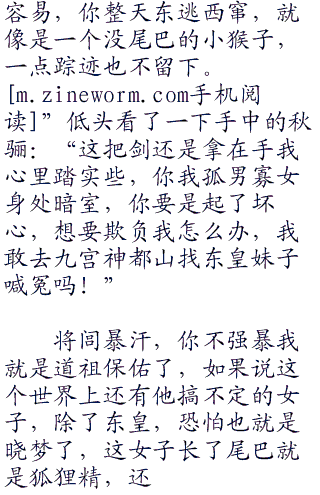 容易，你整天东逃西窜，就
像是一个没尾巴的小猴子，
一点踪迹也不留下。
[m.zineworm.com手机阅
读]”低头看了一下手中的秋
骊：“这把剑还是拿在手我
心里踏实些，你我孤男寡女
身处暗室，你要是起了坏
心，想要欺负我怎么办，我
敢去九宫神都山找东皇妹子
喊冤吗！”
将闾暴汗，你不强暴我
就是道祖保佑了，如果说这
个世界上还有他搞不定的女
子，除了东皇，恐怕也就是
晓梦了，这女子长了尾巴就
是狐狸精，还